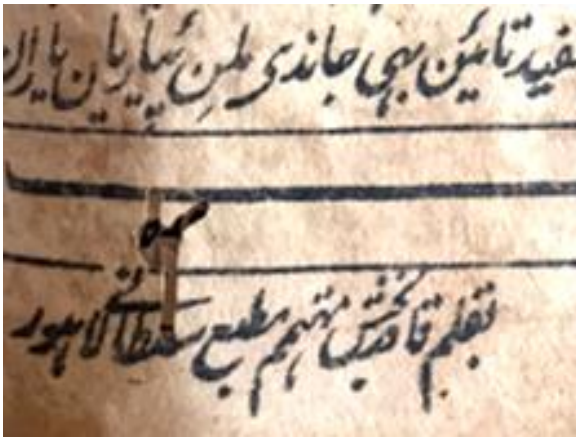 تائین بہی جاندی ملن پیاریان یاران
بقلم قادر بخش مہتمم مطبع سلطانی لاہور